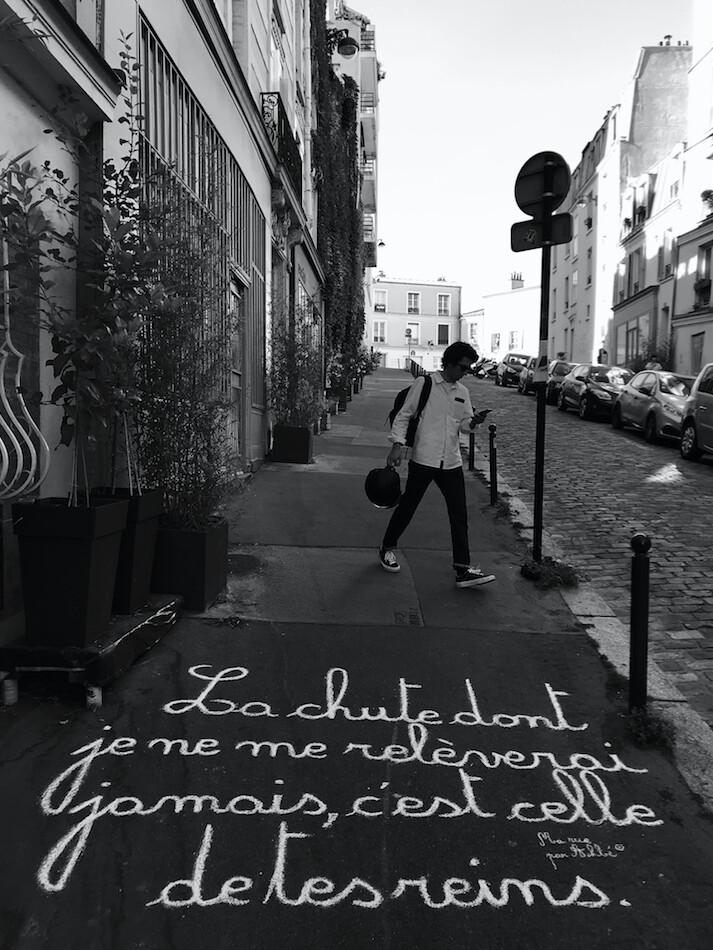 La chute dont
je ne me relèverai
jamais, c'est celle
de tes reins.
Ma rue
par Achbé